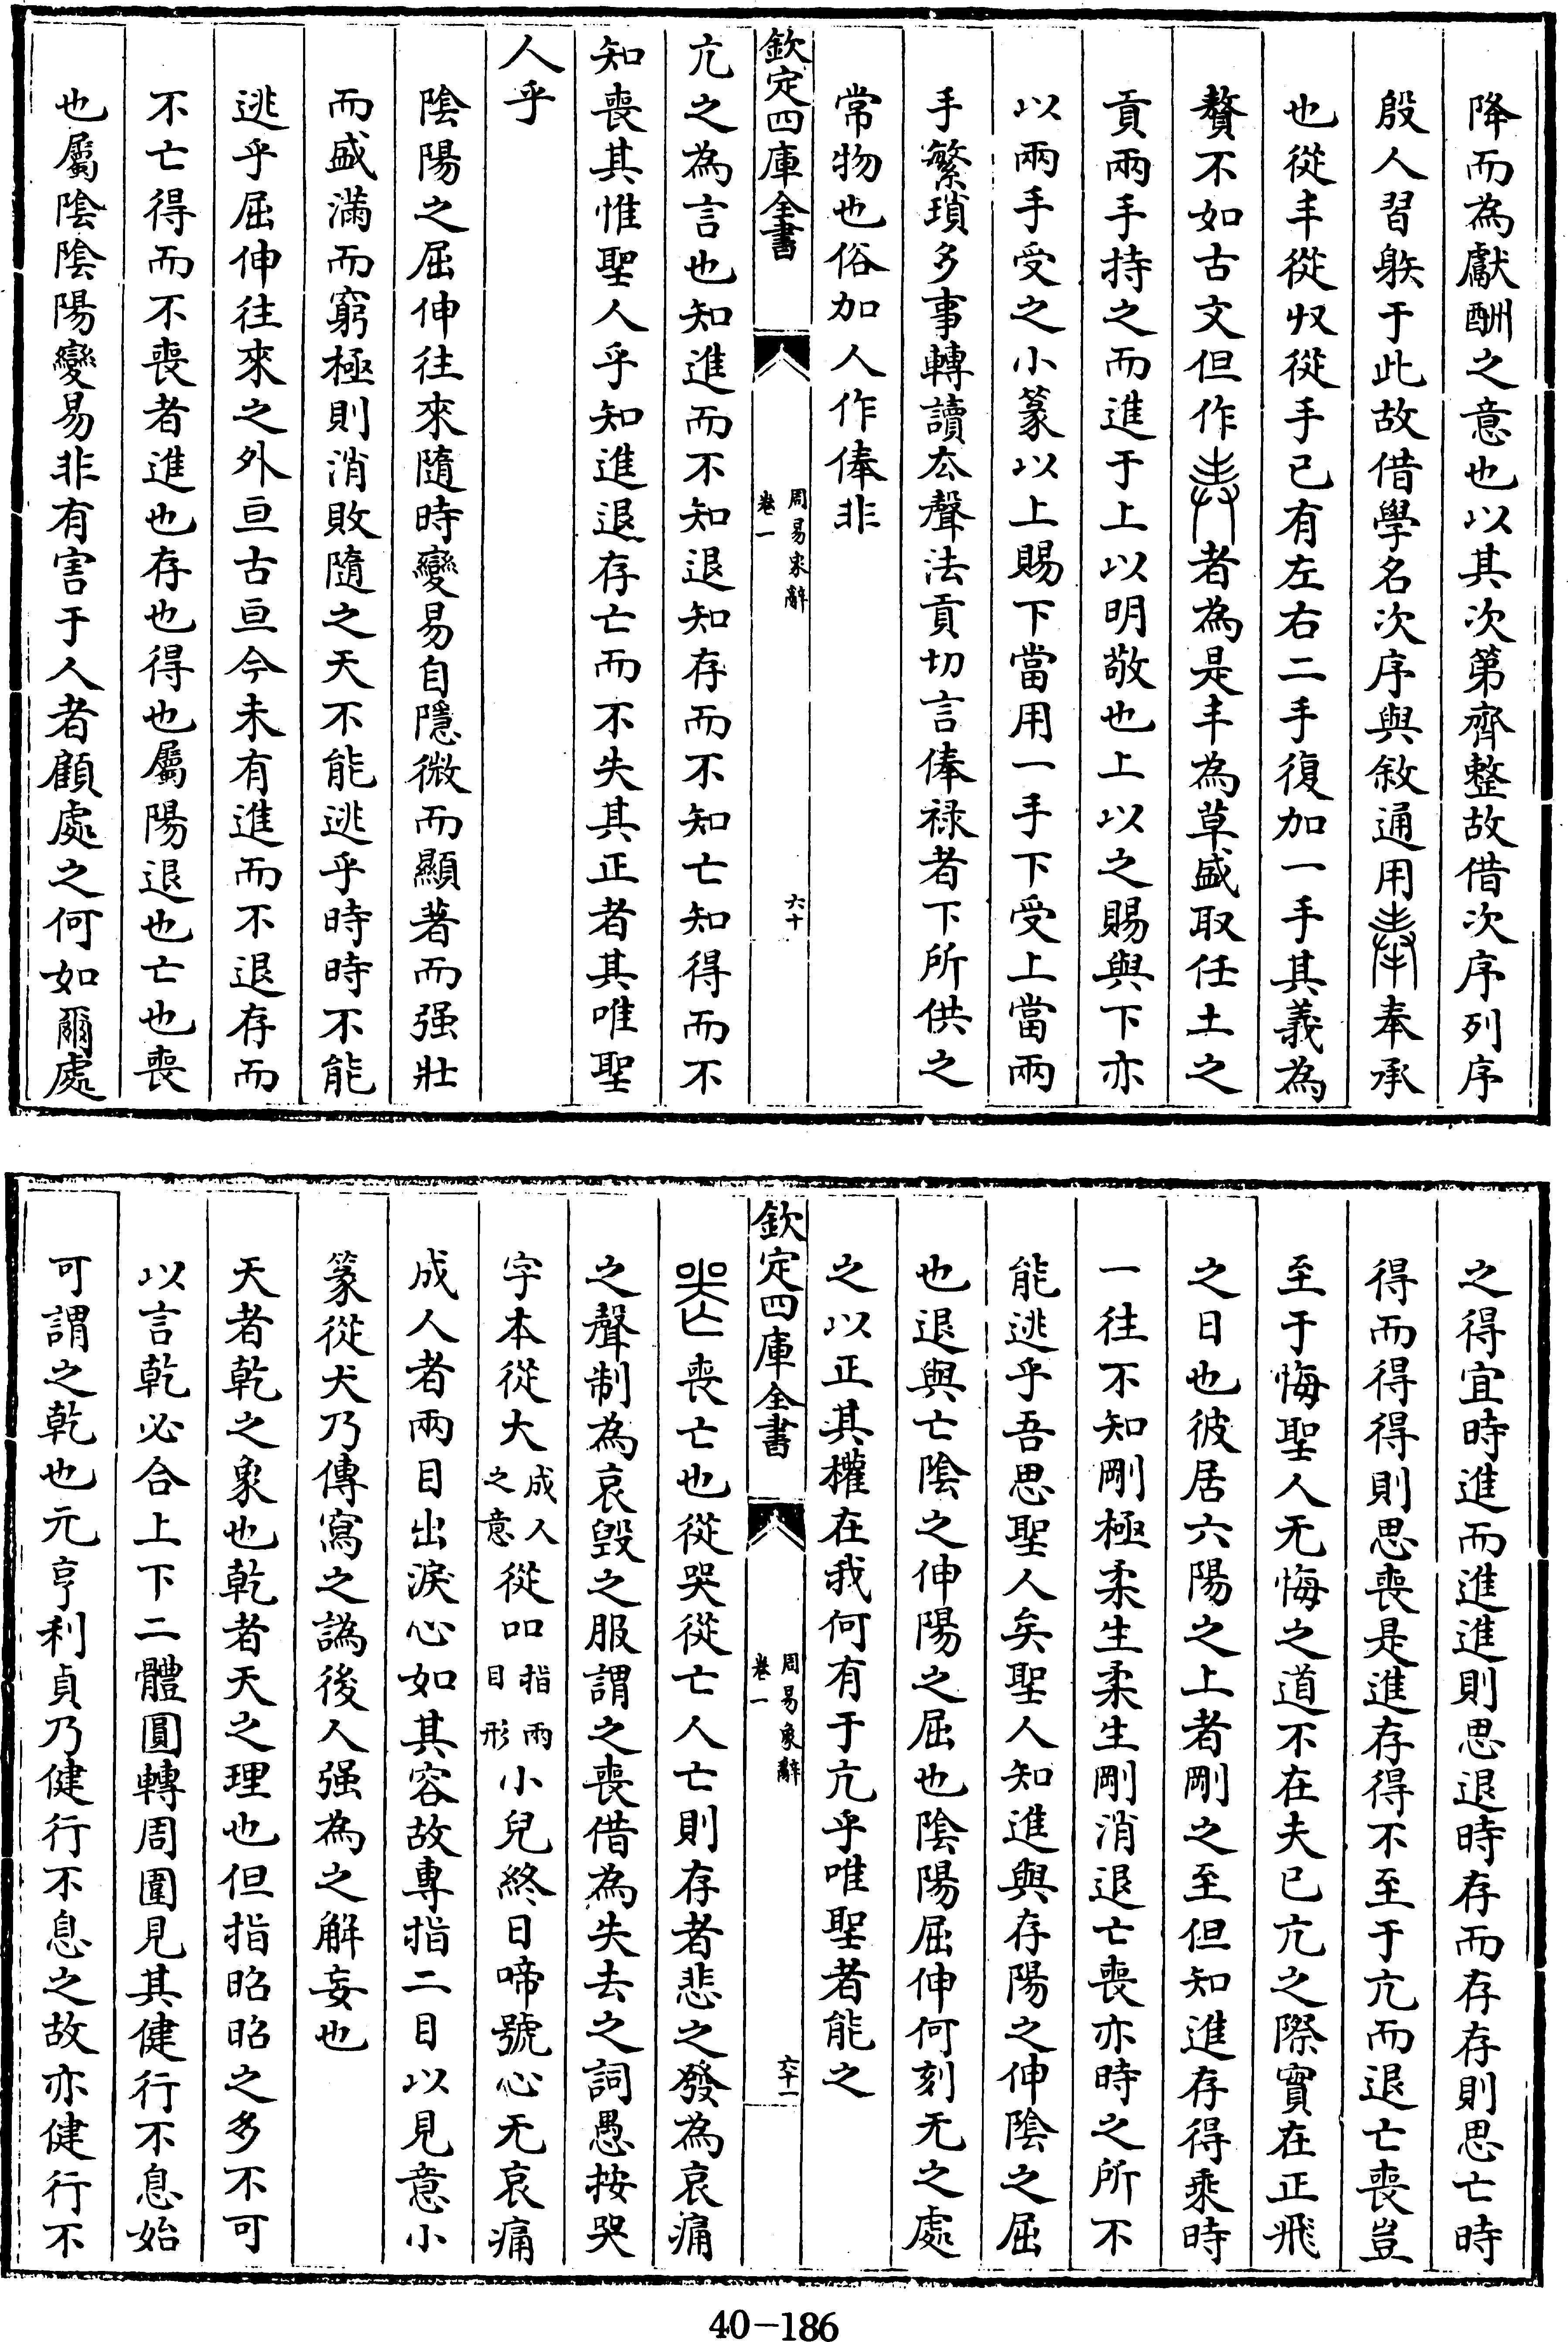 降而為獻酬之意也以其次第齊整故借次序列序
殷人習躲于此故借學名次序與敘通用奉承
也從丰從収從手已有左右二手復加一手其義為
贅不如古文但作者為是丰為草盛取任土之
貢兩手持之而進于上以明敬也上以之賜與下亦
以兩手受之小篆以上賜下當用一手下受上當兩
手繁瑣多事轉讀厺聲法貢切言俸禄者下所供之
常物也俗加人作俸非
欽定四庫全書
周易象辭
卷一
六十
亢之為言也知進而不知退知存而不知亡知得而不
知喪其惟聖人乎知進退存亡而不失其正者其唯聖
人乎
陰陽之屈伸往來隨時變易自隱微而顯著而强壯
而盛滿而窮極則消敗隨之天不能逃乎時時不能
逃乎屈伸往來之外亘古亘今未有進而不退存而
不亡得而不喪者進也存也得也屬陽退也亡也喪
也屬陰陰陽變易非有害于人者顧處之何如爾處
之得宜時進而進進則思退時存而存存則思亡時
得而得得則思喪是進存得不至于亢而退亡喪豈
至于悔聖人无悔之道不在夫已亢之際實在正飛
之日也彼居六陽之上者剛之至但知進存得乘時
一往不知剛極柔生柔生剛消退亡喪亦時之所不
能逃乎吾思聖人矣聖人知進與存陽之伸陰之屈
也退與亡陰之伸陽之屈也陰陽屈伸何刻无之處
之以正其權在我何有于亢乎唯聖者能之
欽定四庫全書
周易象辭
卷一
六十一
喪亡也從哭從亡人亡則存者悲之發為哀痛
之聲制為哀毀之服謂之喪借為失去之詞愚按哭
字本從大成人之意從吅指兩目形小兒終日啼號心无哀痛
成人者兩目出淚心如其容故專指二目以見意小
篆從犬乃傳寫之譌後人强為之解妄也
天者乾之象也乾者天之理也但指昭昭之多不可
以言乾必合上下二體圓轉周圍見其健行不息始
可謂之乾也元亨利貞乃健行不息之故亦健行不
40-186